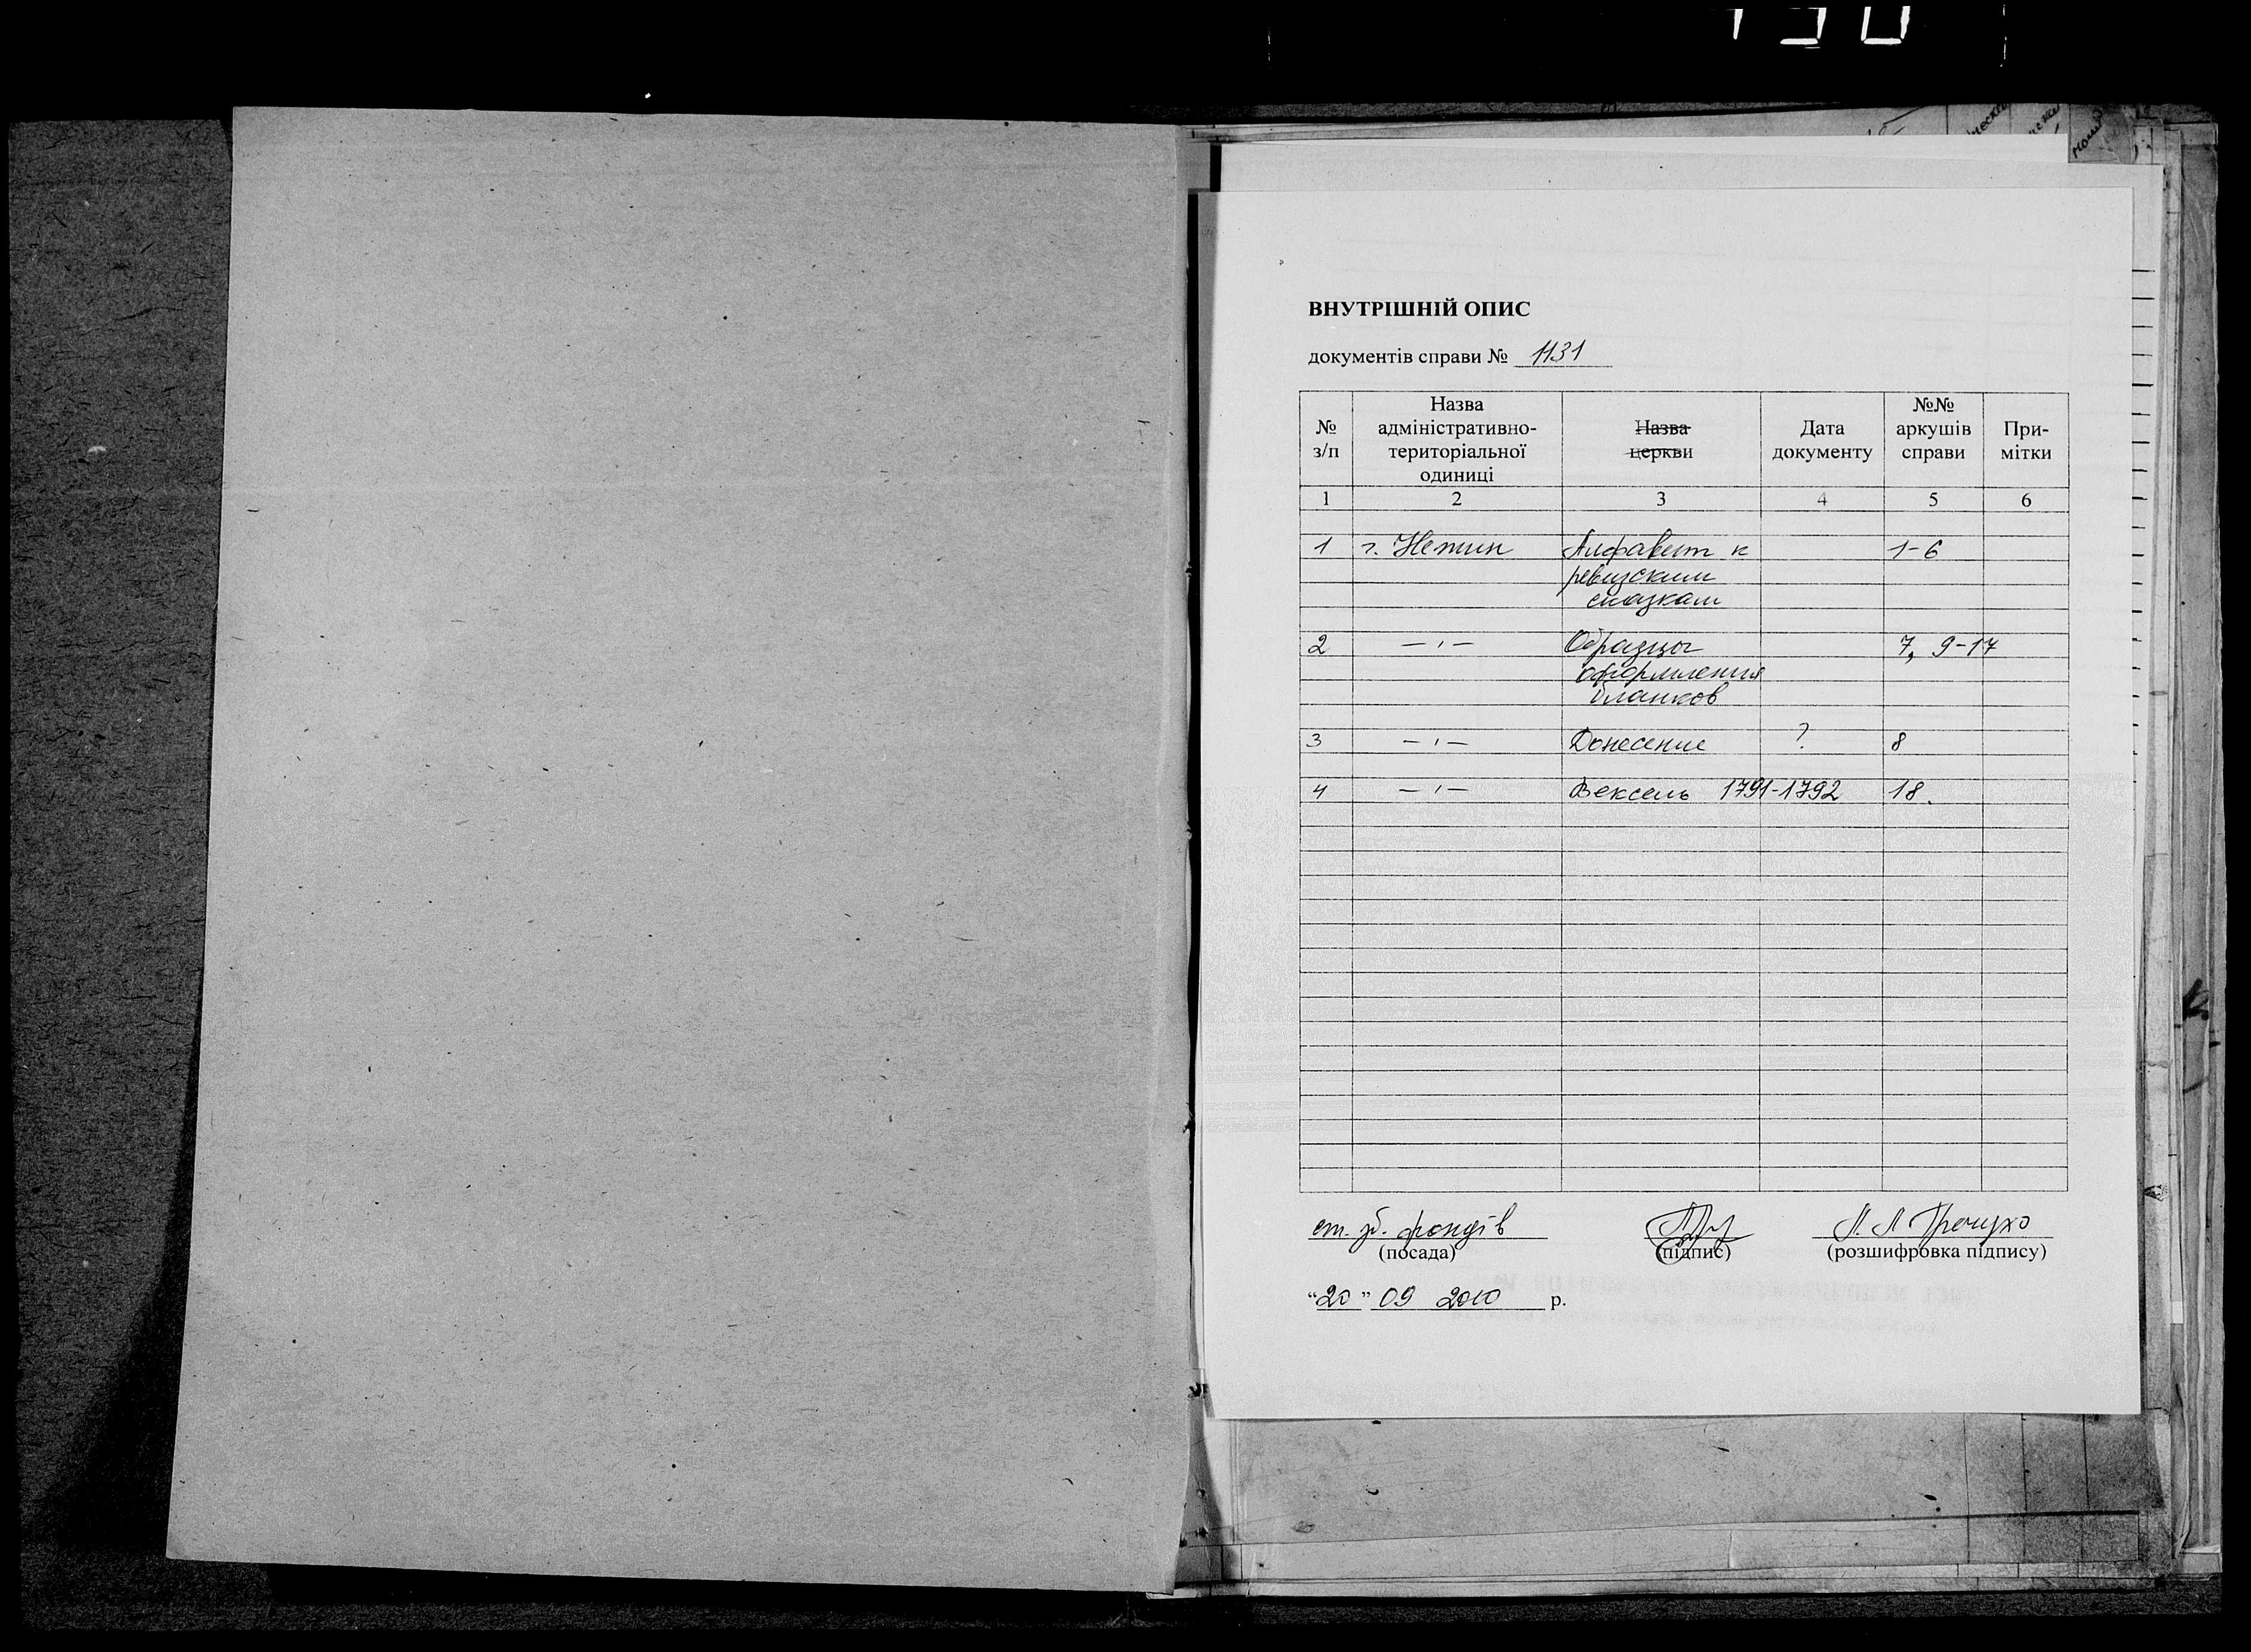 ВНУТРІШНІЙ ОПИС
документів справи № 1131
№ з/п | Назва адміністративно-територіальної одиниці | Назва церкви | Дата документу | №№ аркушів справи | При-мітки
1 2 3 4 5 6
1 г. Нежин Алфавит к 1-6
ревизским
сказкам
2 — ' — Образцы 7, 9-17
оформления
бланков
3 — ' — Донесение ? 8
4 — ' — Вексель 1791-1792 18.
ст. зб. фондів
(посада) (підпис) (розшифровка підпису)
“20” 09 2010 р.